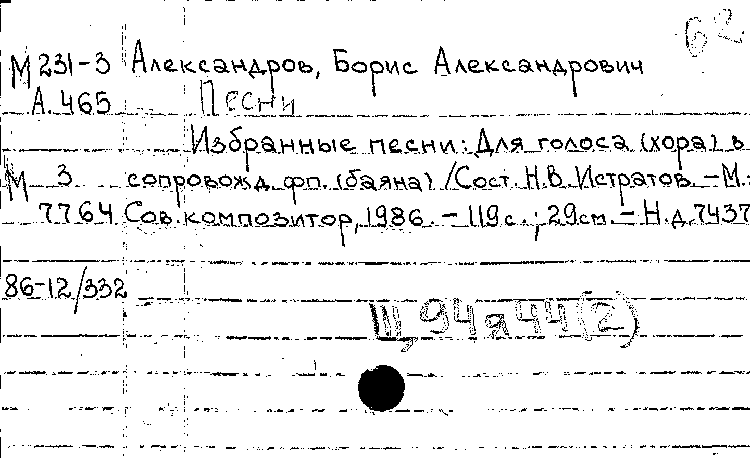 62
М 231-3 Александров, Борис Александрович
А.465 Песни
Избранные песни: Для голоса (хора) в
М 3 сопровожд. фп. (баяна) / Сост. Н.В. Истратов. – М.:
7764 Сов. композитор, 1986. – 119 с.; 29 см. – Н.д. 7437
86-12/332
Щ, 94 я 44 (2)